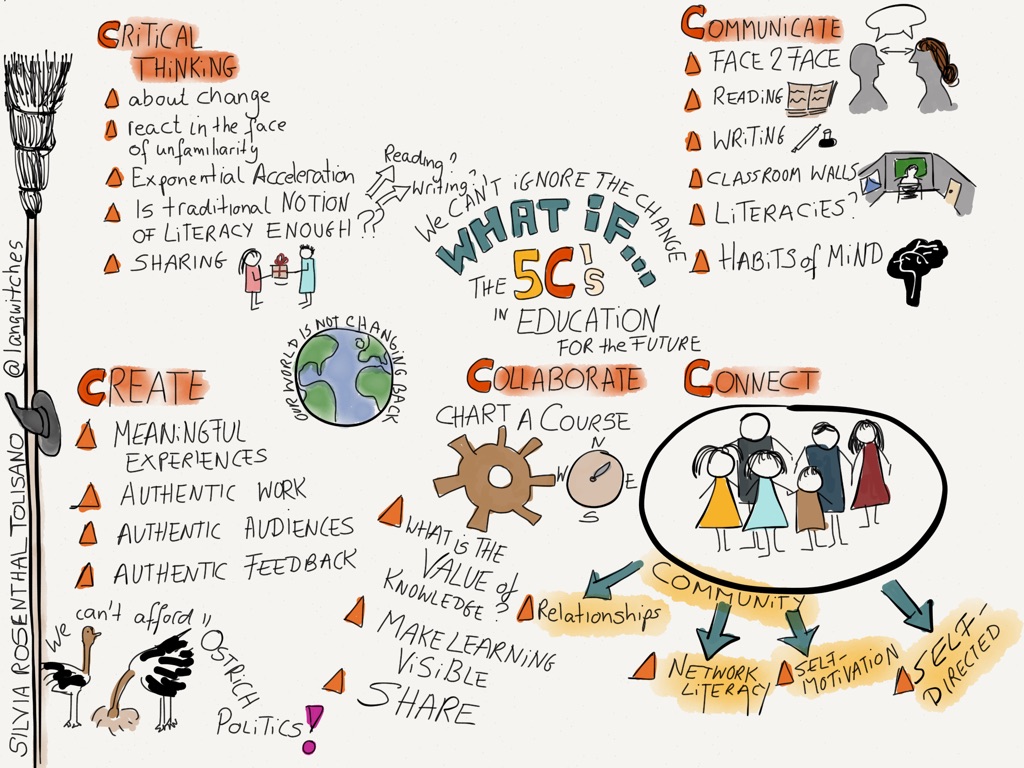 SILVIA ROSENTHAL TOLISANO @langwitches
CRITICAL
THINKING
about change
react in the face
of unfamiliarity
Exponential Acceleration
Is traditional NOTION
OF LITERACY ENOUGH??
Reading?
Writing?
SHARING
WE CAN'T IGNORE THE CHANGE
WHAT IF...
THE 5C's
IN EDUCATION
FOR the FUTURE
COMMUNICATE
FACE 2 FACE
READING
WRITING
CLASSROOM WALLS
LITERACIES?
HABITS of MIND
OUR WORLD IS NOT CHANGING BACK
CREATE
MEANINGFUL
EXPERIENCES
AUTHENTIC WORK
AUTHENTIC AUDIENCES
AUTHENTIC FEEDBACK
We can't afford
OSTRICH
POLITICS!
COLLABORATE
CHART A COURSE
N
W E
S
WHAT IS THE
VALUE of
KNOWLEDGE?
MAKE LEARNING
VISIBLE
SHARE
CONNECT
COMMUNITY
Relationships
NETWORK
LITERACY
SELF-
MOTIVATION
SELF-
DIRECTED